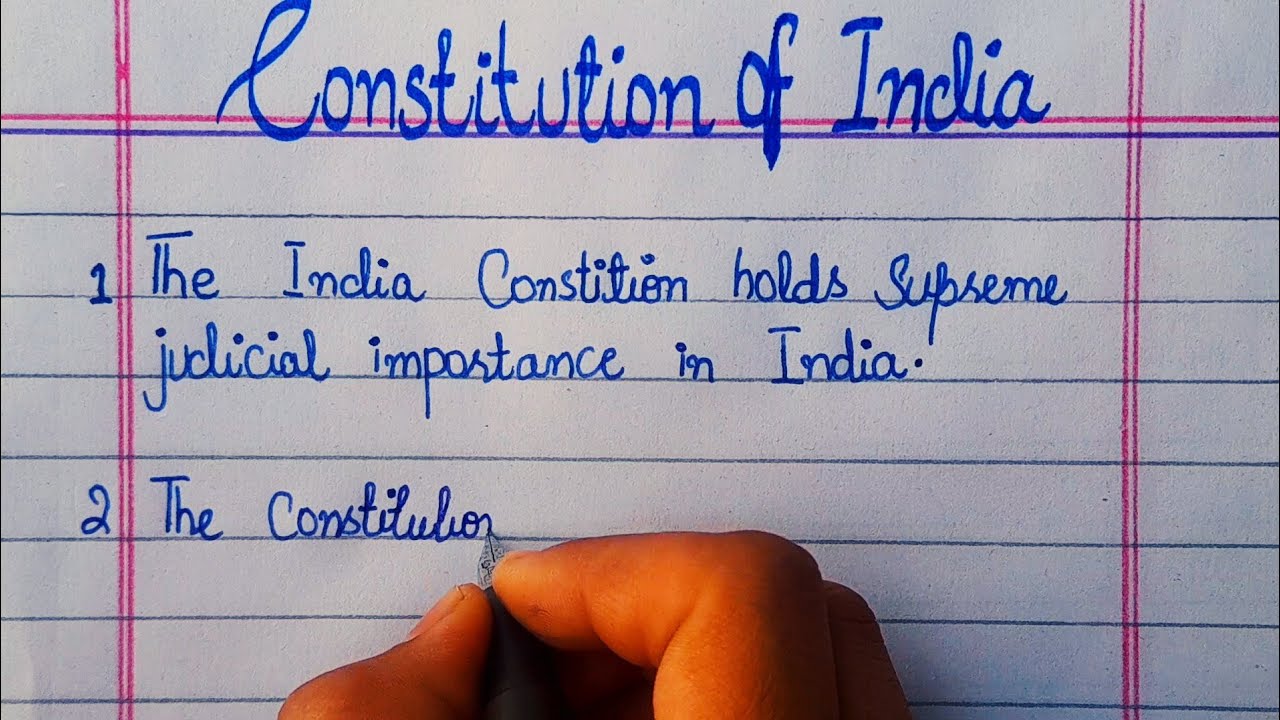 Constitution of India
1 The India Constition holds Supreme
judicial importance in India.
2 The Constitution